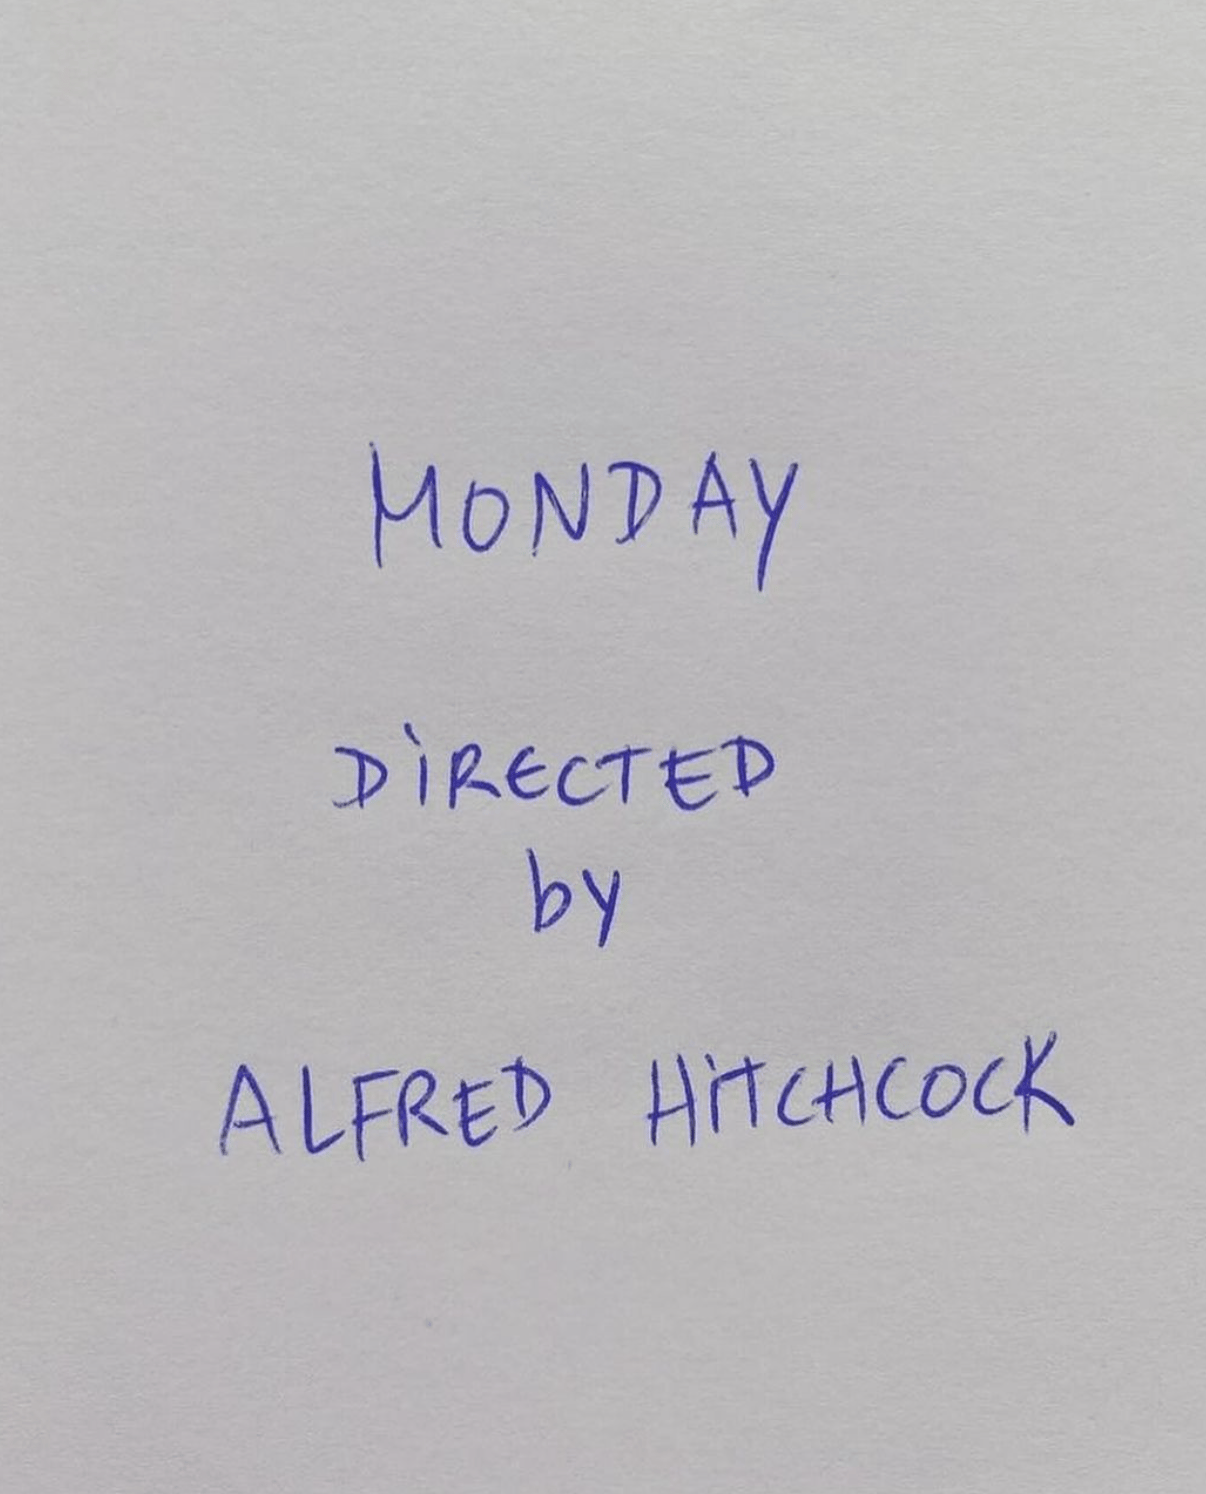 MONDAY
DiRECTED
by
ALFRED HiTCHCOCK